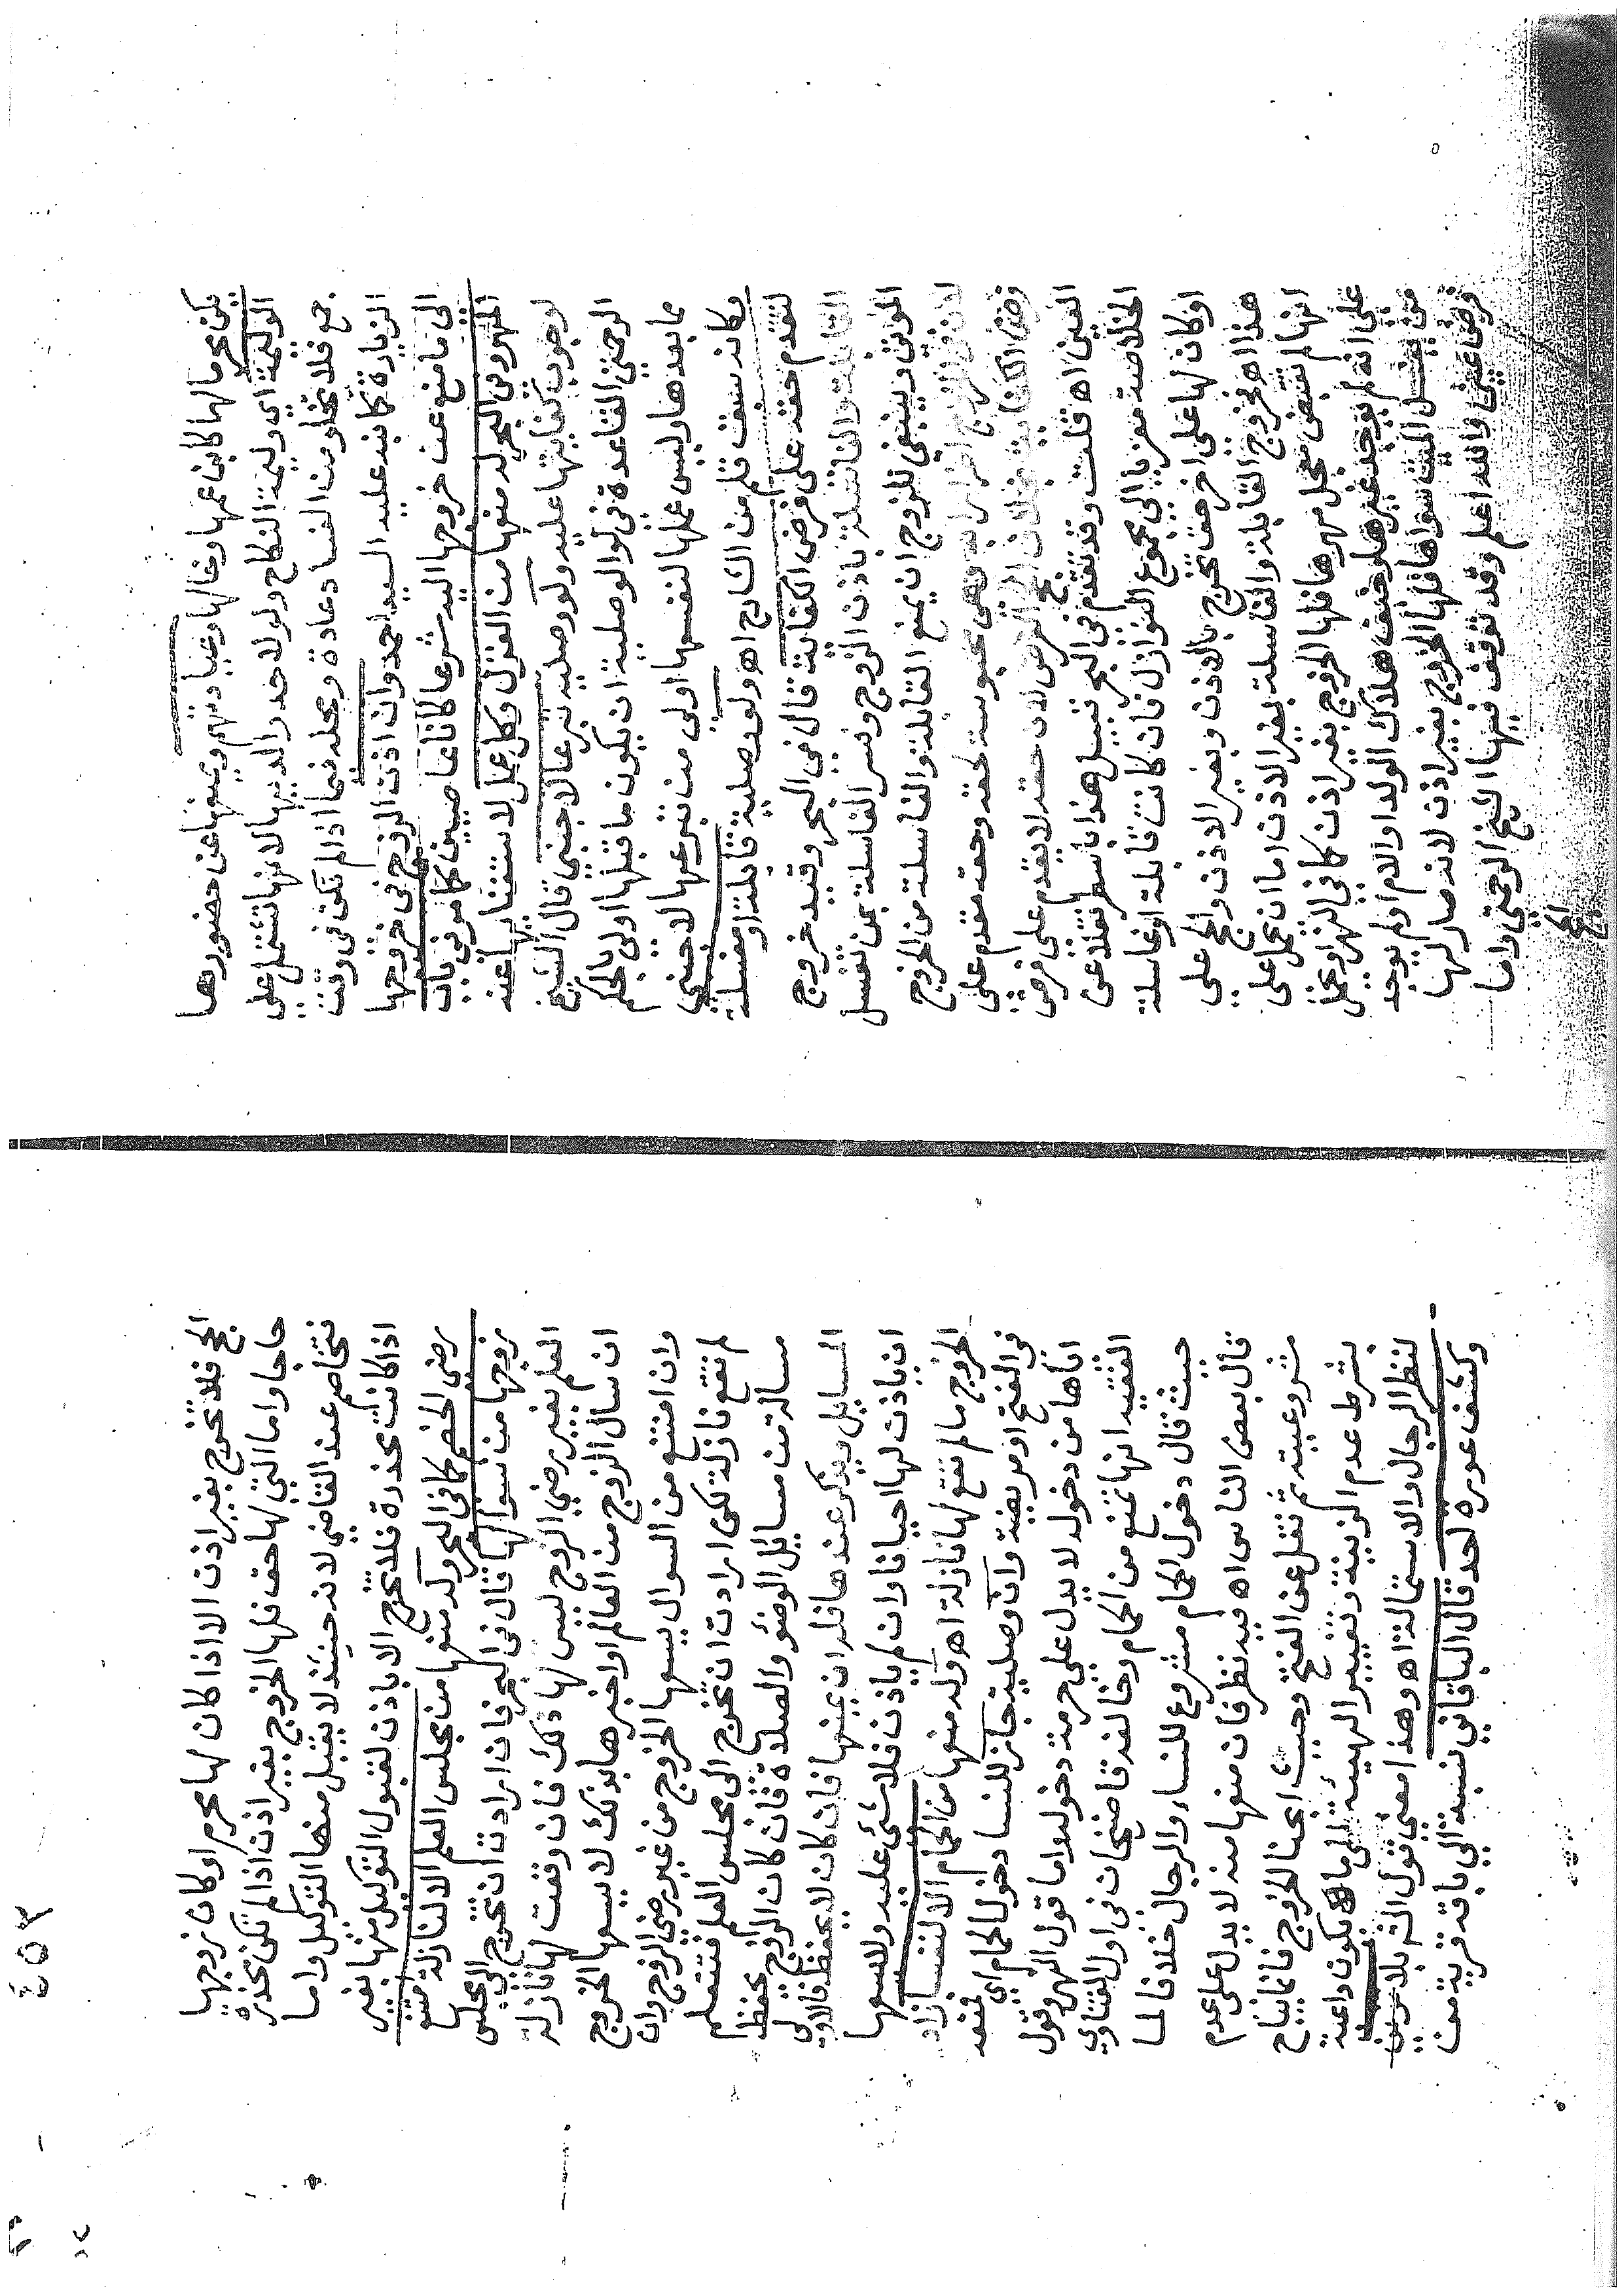 يكن محرما لها كابن عمها وخالها وعيادتهم ويمنعها عن حضورها
الوليمة اي وليمة النكاح ولو لاحد والديها لانها تشتمل على
جمع فلا تخلو من الفساد عادة ومحله فيما اذا لم تكن في وقت
الزيارة كما نبه عليه السيد احمد وان اذن الزوج في خروجها
الى ما منع عن خروجها اليه شرعا كانا عاصيين كما مر في باب
المهر وفي البحر له منعها من الغزل وكل عمل لاستغنايها عنه
لوجوب كفايتها عليه ولو وصلية تبرعا لاجنبي قال الشيخ
الرحمتي القاعدة في لو الوصلية ان يكون ما قبلها اولى بالحكم
مما بعدها وليس عملها لنفسها اولى من تبرعها لاجنبي
وكانه سبق قلم من الشارح اه ولو وصلية قابلة او مغسلة
لتقدم حقه على فرض الكفاية قال في البحر وقيد خروج
القابلة والغاسلة باذن الزوج وفسر الغاسلة بمن تغسل
الموتى وينبغي للزوج ان يمنع القابلة والغاسلة من الخروج
لان في الخروج اضرارا به وهي محبوسة لحقه وحقه مقدم على
فرض الكفاية بخلاف الحج الفرض لان حقه لا يقدم على فرض
العين اه قلت وقد تقدم في البحر قبيل هذا باسطر نقلا عن
الخلاصة معزيا الى مجموع النوازل فان كانت قابلة او غاسلة
او كان لها على اخر حق تخرج بالاذن وبغير الاذن والحج على
هذا اه فخروج القابلة والغاسلة بغير الاذن اما ان يحمل على
انها لم تقبض معجل مهرها فلها الخروج بغير اذن كما في النهر او يحمل
على انه لم يوجد غيرها وخيف هلاك الولد او الام او لم يوجد
من يغسل الميت سواها فلها الخروج بغير اذن لانه صار لها
فرض عين والله اعلم وقد توقف فيها الشيخ الرحمتي واما
الحج
٢٥٣
الحج فلا تخرج بغير اذن الا اذا كان لها محرم او كان زوجها
حاجا واما التي لها حق فلها الخروج بغير اذن اذا لم تكن مخدرة
فتخاصم عند القاضي لانه حينئذ لا يقبل منها التوكيل واما
اذا كانت مخدرة فلا تخرج الا باذن لقبول التوكيل منها بغير
رضى الخصم كما في البحر وله منعها من مجلس العلم الا لنازلة امتنع
زوجها من سوالها قال في البحر فان ارادت ان تخرج الى مجلس
العلم بغير رضى الزوج ليس لها ذلك فان وقعت لها نازلة
ان سال الزوج من العالم واخبرها بذلك لا يسعها الخروج
وان امتنع من السوال يسعها الخروج من غير رضى الزوج وان
لم تقع نازلة لكن ارادت ان تخرج الى مجلس العلم فتتعلم
مسالة من مسائل الوضوء والصلاة فان كان الزوج يحفظ
المسايل ويذكر عندها فله ان يمنعها فان كان لا يحفظ فالاولى
ان ياذن لها احيانا وان لم ياذن فلا شئ عليه ولا يسعها
الخروج ما لم تقع لها نازلة اه وله منعها من الحمام الا لنفسا زاد
في الفتح او مريضة وان وصلية جاز للنساء دخول الحمام اي لمنعه
اياها من دخوله لا يدل على حرمة دخوله واما قول النهر وقول
الفقيه انها تمنع من الحمام وخالفه قاضيخان في اول الفتاوي
حيث قال دخول الحمام مشروع للنساء والرجال خلافا لما
قال بعض الناس اه فيه نظر فان منعها منه لا يدل على عدم
مشروعيته ثم نقل عن الفتح وحيث ابحنا الخروج فانما يباح
بشرط عدم الزينة وتغيير الهيئة الى ما لا يكون داعية
لنظر الرجال والاستمالة اه وهذا معنى قول الشر بلا تزين
وكشف عورة احد قال الباقاني نسبة الى باقة قرية من